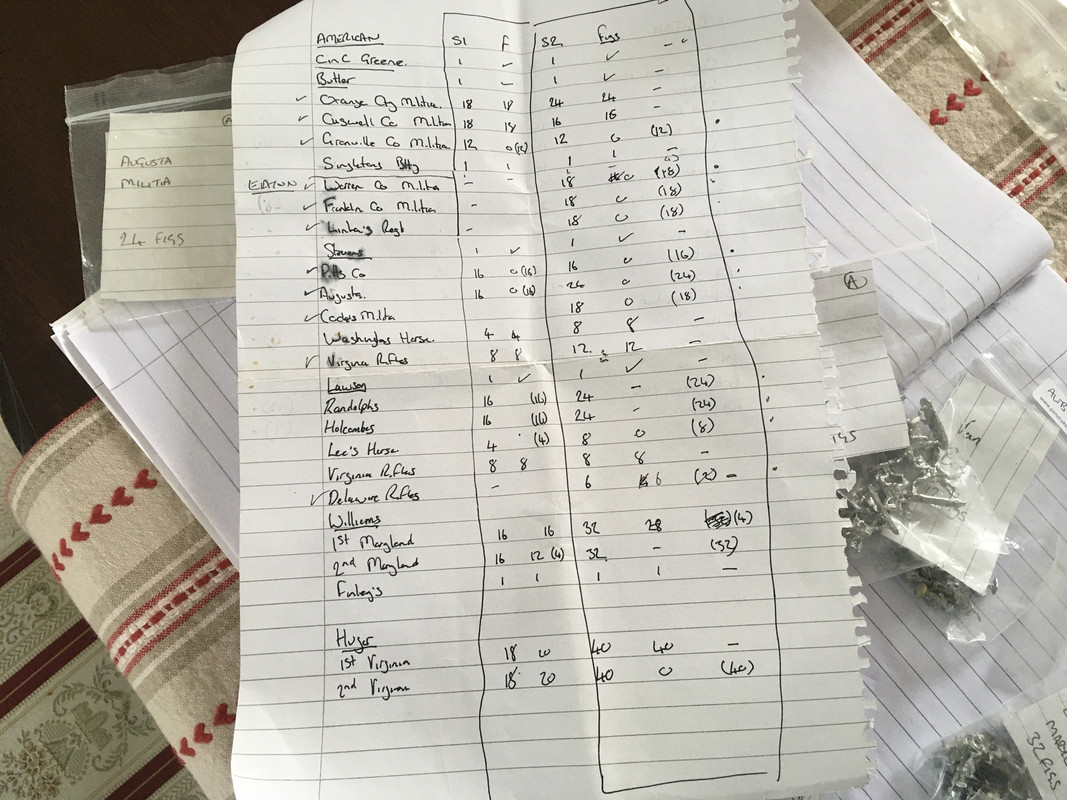 AMERICAN S1 F S2 Figs
CnC Greene. 1 ✓ 1 ✓ -
Butler 1 ✓ 1 ✓ -
✓ Orange Cty Militia. 18 18 24 24 -
✓ Caswell Co Militia 18 18 16 16 -
✓ Granville Co Militia 12 0(12) 12 0 (12)
Singletons Btty 1 1 1 1 -
EATON ✓ Warren Co Militia - 18 0 (18)
✓ Franklin Co Militia - 18 0 (18)
✓ Linka's Regt - 18 0 (18)
Stevens 1 ✓ 1 ✓
✓ Pitts Co 16 0(16) 16 0 (16)
✓ Augusta. 16 0(16) 24 0 (24)
✓ Cockes Milita 18 0 (18)
Washingtons Horse. 4 4 8 8 -
✓ Virginia Rifles 8 8 12. 12 -
Lawson 1 ✓ 1 ✓ -
Randolphs 16 (16) 24 - (24)
Holcombes 16 (16) 24 - (24)
Lee's Horse 4 (4) 8 0 (8)
Virginia Rifles 8 8 8 8 -
✓ Delaware Rifles - 6 6 -
Williams
1st Maryland 16 16 32 28 (4)
2nd Maryland 16 12 (4) 32 - (32)
Finley's 1 1 1 1 -
Huger
1st Virginia 18 20 40 40 -
2nd Virginia 18 20 40 0 (40)
A
AUGUSTA
MILITIA
24 FIGS
A
IGS
32 FIGS